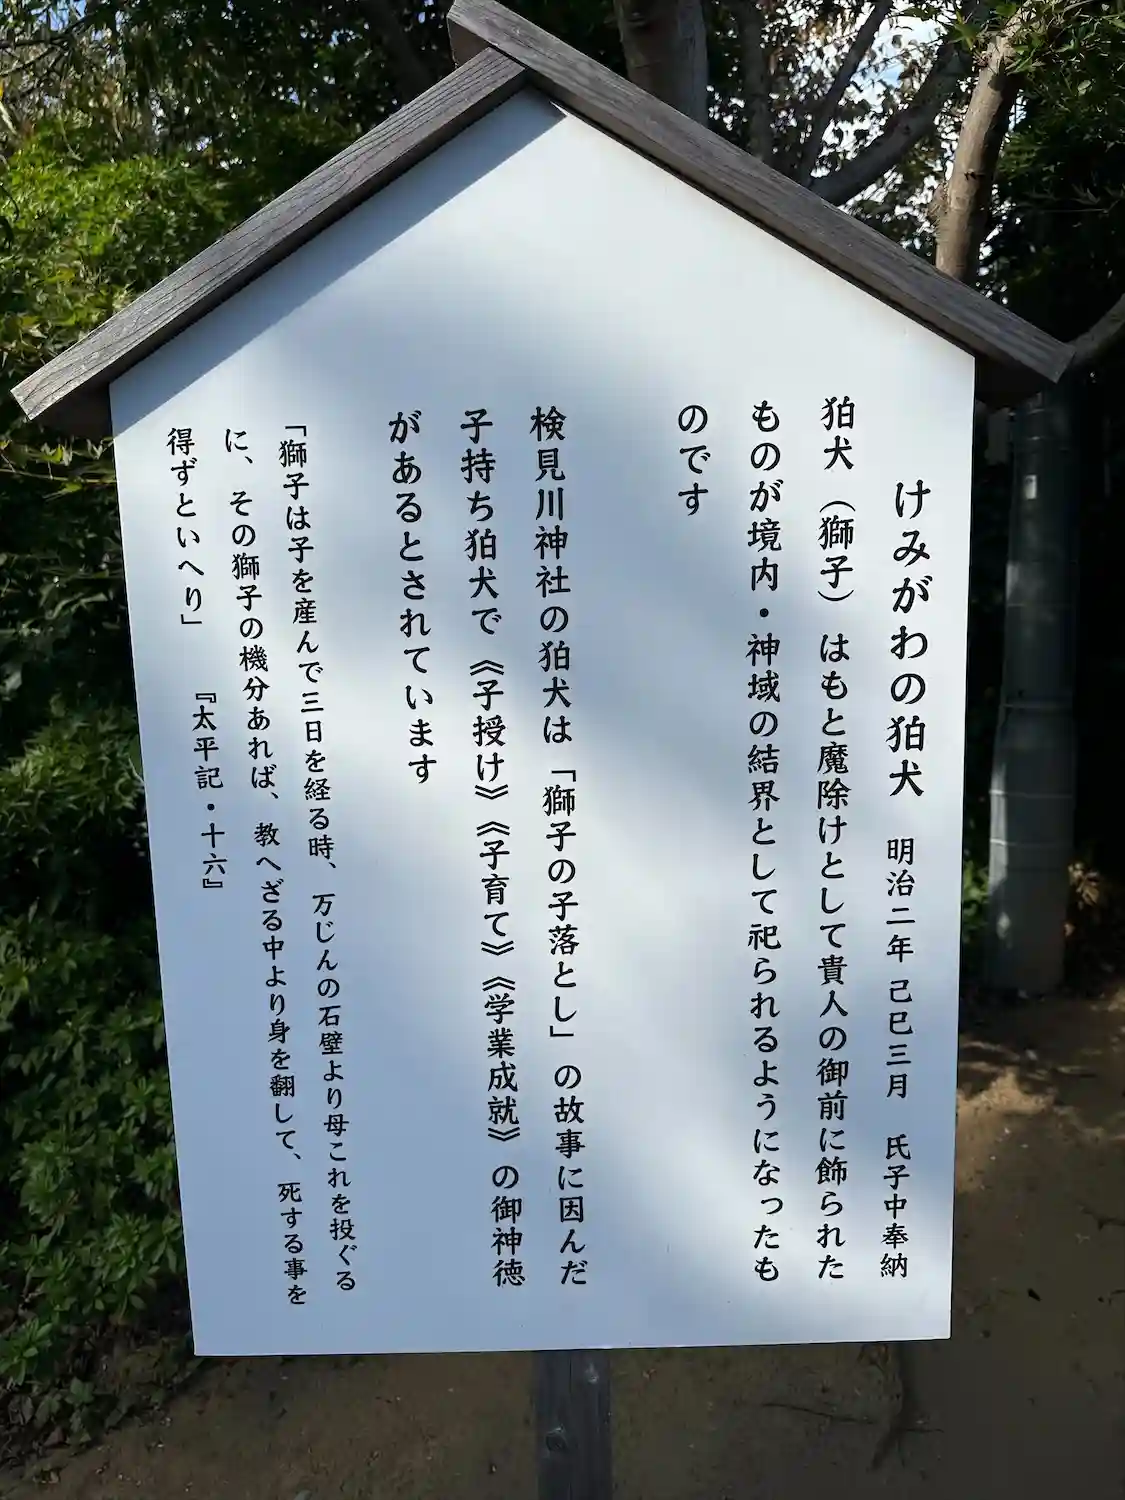 けみがわの狛犬　明治二年 己巳三月　氏子中奉納
狛犬（獅子）はもと魔除けとして貴人の御前に飾られた
ものが境内・神域の結界として祀られるようになったも
のです
検見川神社の狛犬は「獅子の子落とし」の故事に因んだ
子持ち狛犬で《子授け》《子育て》《学業成就》の御神徳
があるとされています
「獅子は子を産んで三日を経る時、万じんの石壁より母これを投ぐる
に、その獅子の機分あれば、教へざる中より身を翻して、死する事を
得ずといへり」　『太平記・十六』